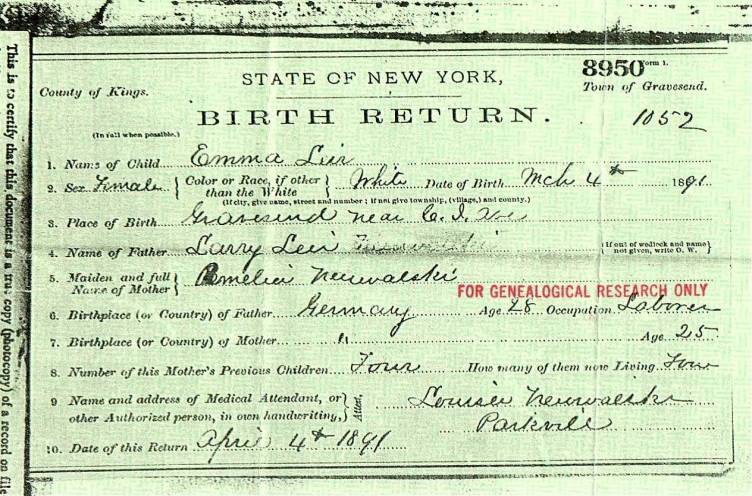 8950
Form 1.
County of Kings.
STATE OF NEW YORK,
Town of Gravesend.
BIRTH RETURN.
1052
(In full when possible.)
1. Name of Child Emma Leir
2. Sex Female { Color or Race, if other than the White } White Date of Birth Mch 4th 1891
(If city, give name, street and number; if not give township, (village,) and county.)
3. Place of Birth Gravesend near C. I. Ave
4. Name of Father Larry Leir { If out of wedlock and name not given, write O. W. }
5. Maiden and full Name of Mother } Amelia Neuwalski
FOR GENEALOGICAL RESEARCH ONLY
6. Birthplace (or Country) of Father Germany Age 28 Occupation Laborer
7. Birthplace (or Country) of Mother " Age 25
8. Number of this Mother's Previous Children Four How many of them now Living Four
9 Name and address of Medical Attendant, or other Authorized person, in own handwriting, } Attest, Louisa Neuwalski
Parkville
10. Date of this Return April 4th 1891
This is to certify that this document is a true copy (photocopy) of a record on file